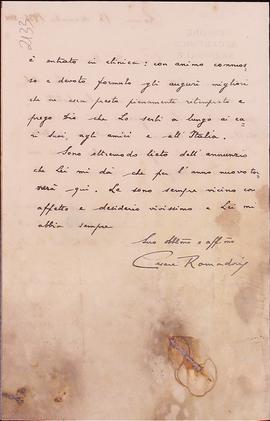 2133
è entrato in clinica: con animo commos-
so e devoto formulo gli auguri migliori
che ne esca presto pienamente ritemprato e
prego Dio che Lo serbi a lungo ai ca-
ri Suoi, agli amici e all'Italia.
Sono oltremodo lieto dell'annunzio
che Lei mi dà che per l'anno nuovo tor-
nerà qui. Le sono sempre vicino con
affetto e desiderio vivissimo e Lei mi
abbia sempre
Suo obbmo e affmo
Cesare